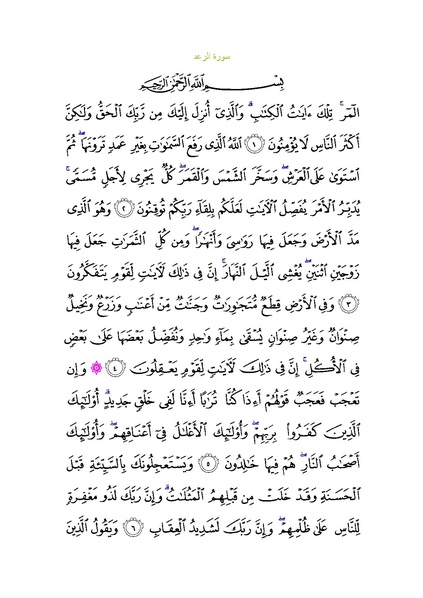 سورة الرعد
بِسْمِ اللَّهِ الرَّحْمَٰنِ الرَّحِيمِ
الٓمٓر ۚ تِلْكَ ءَايَٰتُ الْكِتَٰبِ ۗ وَالَّذِىٓ أُنزِلَ إِلَيْكَ مِن رَّبِّكَ الْحَقُّ وَلَٰكِنَّ
أَكْثَرَ النَّاسِ لَا يُؤْمِنُونَ ١ اللَّهُ الَّذِى رَفَعَ السَّمَٰوَٰتِ بِغَيْرِ عَمَدٍ تَرَوْنَهَا ۖ ثُمَّ
اسْتَوَىٰ عَلَى الْعَرْشِ ۖ وَسَخَّرَ الشَّمْسَ وَالْقَمَرَ ۖ كُلٌّ يَجْرِى لِأَجَلٍ مُّسَمًّى ۚ
يُدَبِّرُ الْأَمْرَ يُفَصِّلُ الْءَايَٰتِ لَعَلَّكُم بِلِقَآءِ رَبِّكُمْ تُوقِنُونَ ٢ وَهُوَ الَّذِى
مَدَّ الْأَرْضَ وَجَعَلَ فِيهَا رَوَٰسِىَ وَأَنْهَٰرًا ۖ وَمِن كُلِّ الثَّمَرَٰتِ جَعَلَ فِيهَا
زَوْجَيْنِ اثْنَيْنِ ۖ يُغْشِى الَّيْلَ النَّهَارَ ۚ إِنَّ فِى ذَٰلِكَ لَءَايَٰتٍ لِّقَوْمٍ يَتَفَكَّرُونَ
٣ وَفِى الْأَرْضِ قِطَعٌ مُّتَجَٰوِرَٰتٌ وَجَنَّٰتٌ مِّنْ أَعْنَٰبٍ وَزَرْعٌ وَنَخِيلٌ
صِنْوَانٌ وَغَيْرُ صِنْوَانٍ يُسْقَىٰ بِمَآءٍ وَٰحِدٍ وَنُفَضِّلُ بَعْضَهَا عَلَىٰ بَعْضٍ
فِى الْأُكُلِ ۚ إِنَّ فِى ذَٰلِكَ لَءَايَٰتٍ لِّقَوْمٍ يَعْقِلُونَ ٤ ۞ وَإِن
تَعْجَبْ فَعَجَبٌ قَوْلُهُمْ أَءِذَا كُنَّا تُرَٰبًا أَءِنَّا لَفِى خَلْقٍ جَدِيدٍ ۗ أُو۟لَٰٓئِكَ
الَّذِينَ كَفَرُوا۟ بِرَبِّهِمْ ۖ وَأُو۟لَٰٓئِكَ الْأَغْلَٰلُ فِىٓ أَعْنَاقِهِمْ ۖ وَأُو۟لَٰٓئِكَ
أَصْحَٰبُ النَّارِ ۖ هُمْ فِيهَا خَٰلِدُونَ ٥ وَيَسْتَعْجِلُونَكَ بِالسَّيِّئَةِ قَبْلَ
الْحَسَنَةِ وَقَدْ خَلَتْ مِن قَبْلِهِمُ الْمَثُلَٰتُ ۗ وَإِنَّ رَبَّكَ لَذُو مَغْفِرَةٍ
لِّلنَّاسِ عَلَىٰ ظُلْمِهِمْ ۖ وَإِنَّ رَبَّكَ لَشَدِيدُ الْعِقَابِ ٦ وَيَقُولُ الَّذِينَ